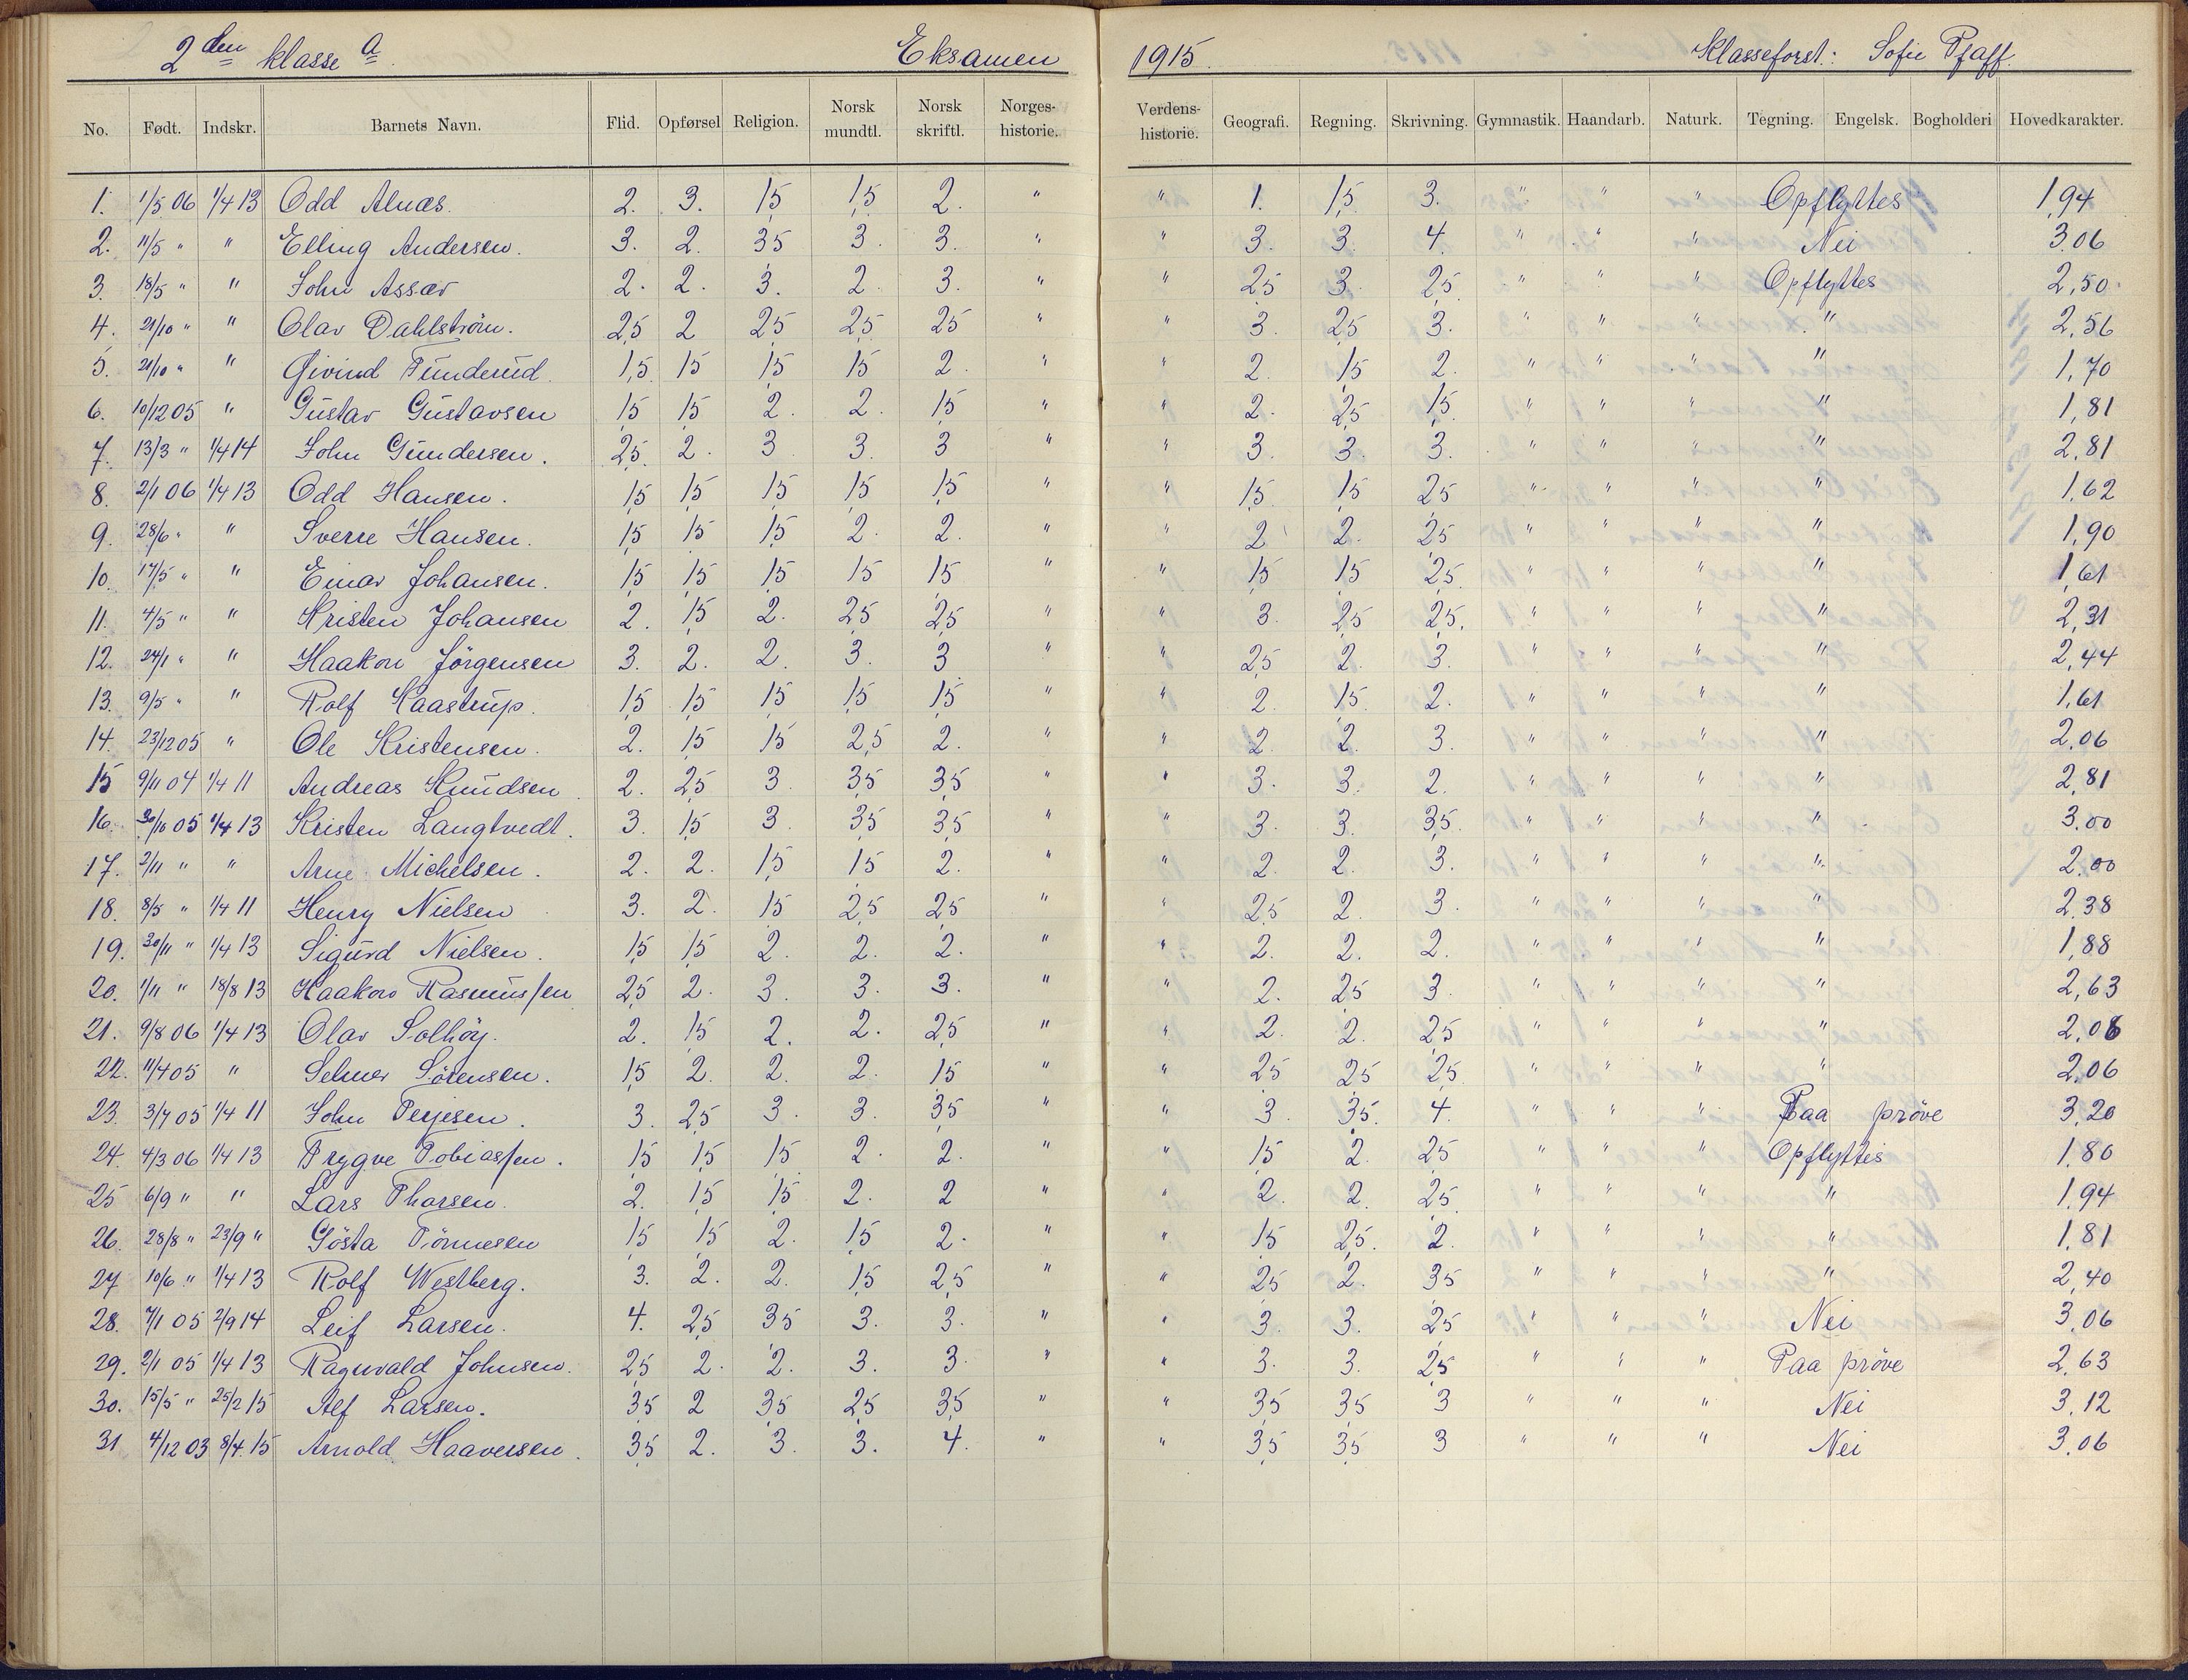 2den klasse a Eksamen 1915. Klasseforst.: Sofie Pfaff.
No. Født. Indskr. Barnets Navn. Flid. Opførsel Religion. Norsk mundtl. Norsk skriftl. Norges-historie. Verdens-historie. Geografi. Regning. Skrivning. Gymnastik. Haandarb. Naturk. Tegning. Engelsk. Bogholderi Hovedkarakter.
1. 1/5 06 1/4 13 Odd Alnæs. 2. 3. 1,5 1,5 2. " " 1. 1,5 3. " " " Opflyttes 1,94
2. 11/5 " " Elling Andersen. 3. 2. 3,5 3. 3. " " 3. 3. 4. " " " Nei 3,06
3. 18/5 " " John Assær 2. 2. 3. 2. 3. " " 2,5 3. 2,5 " " " Opflyttes 2,50
4. 21/10 " " Olav Dahlström. 2,5 2 2,5 2,5 2,5 " " 3. 2,5 3. " " " " 2,56
5. 21/10 " " Øivind Funderud. 1,5 1,5 1,5 1,5 2. " " 2. 1,5 2. " " " " 1,70
6. 10/12 05 " Gustav Gustavsen 1,5 1,5 2. 2. 1,5 " " 2. 2,5 1,5 " " " " 1,81
7. 13/3 " 1/4 14 John Gundersen. 2,5 2. 3 3. 3 " " 3. 3. 3. " " " " 2,81
8. 2/1 06 1/4 13 Odd Hansen. 1,5 1,5 1,5 1,5 1,5 " " 1,5 1,5 2,5 " " " " 1,62
9. 28/6 " " Sverre Hansen. 1,5 1,5 1,5 2. 2. " " 2. 2. 2,5 " " " " 1,90
10. 17/5 " " Einar Johansen. 1,5 1,5 1,5 1,5 1,5 " " 1,5 1,5 2,5 " " " " 1,61
11. 4/5 " " Kristen Johansen 2. 1,5 2. 2,5 2,5 " " 3. 2,5 2,5. " " " " 2,31
12. 24/1 " " Haakon Jörgensen 3. 2. 2. 3. 3 " " 2,5 2. 3. " " " " 2,44
13. 9/5 " " Rolf Kaastrup. 1,5 1,5 1,5 1,5 1,5 " " 2. 1,5 2. " " " " 1,61
14. 23/12 05 " Ole Kristensen. 2. 1,5 1,5 2,5 2. " " 2. 2. 3. " " " " 2,06
15 9/11 04 1/4 11 Andreas Knudsen. 2. 2,5 3. 3,5 3,5 " " 3. 3. 2. " " " " 2,81
16. 30/10 05 1/4 13 Kristen Langtvedt. 3. 1,5 3. 3,5 3,5 " " 3. 3. 3,5. " " " " 3,00
17. 2/11 " " Arne Michelsen. 2. 2. 1,5 1,5 2. " " 2. 2. 3. " " " " 2,00
18. 8/5 " 1/4 11 Henry Nielsen 3. 2. 1,5 2,5 2,5 " " 2,5 2. 3. " " " " 2,38
19. 30/11 " 1/4 13 Sigurd Nielsen. 1,5 1,5 2. 2. 2. " " 2. 2. 2. " " " " 1,88
20. 1/11 " 18/8 13 Haakon Rasmussen 2,5 2. 3. 3. 3. " " 2. 2,5 3. " " " " 2,63
21. 9/8 06 1/4 13 Olav Solhöy. 2. 1,5 2. 2. 2,5 " " 2. 2. 2,5 " " " " 2,06
22. 11/4 05 " Selmer Sörensen. 1,5 2. 2. 2. 1,5 " " 2,5 2,5 2,5 " " " " 2,06
23. 3/7 05 1/4 11 John Terjesen. 3. 2,5 3. 3. 3,5 " " 3. 3,5. 4. " " " Paa pröve 3,20
24. 4/3 06 1/4 13 Trygve Tobiassen. 1,5 1,5 1,5 2. 2. " " 1,5 2. 2,5 " " " Opflyttes 1,80
25 6/9 " " Lars Tharsen. 2. 1,5 1,5 2. 2 " " 2. 2. 2,5 " " " " 1,94
26. 28/8 " 23/9 " Gösta Tönnesen 1,5 1,5 2. 1,5 2. " " 1,5 2,5. 2. " " " " 1,81
27 10/6 " 1/4 13 Rolf Westberg. 3. 2. 2. 1,5 2,5 " " 2,5 2. 3,5 " " " " 2,40
28. 7/1 05 2/9 14 Leif Larsen. 4. 2,5 3,5 3. 3. " " 3. 3. 2,5 " " " Nei 3,06
29. 2/1 05 1/4 13 Ragnvald Johnsen. 2,5 2. 2. 3. 3. " " 3. 3. 2,5 " " " Paa pröve 2,63
30. 15/5 " 25/2 15 Alf Larsen. 3,5 2 3,5 2,5 3,5 " " 3,5 3,5 3 " " " Nei 3,12
31 4/12 03 8/4 15 Arnold Haaversen. 3,5 2. 3. 3. 4. " " 3,5 3,5 3 " " " Nei 3,06